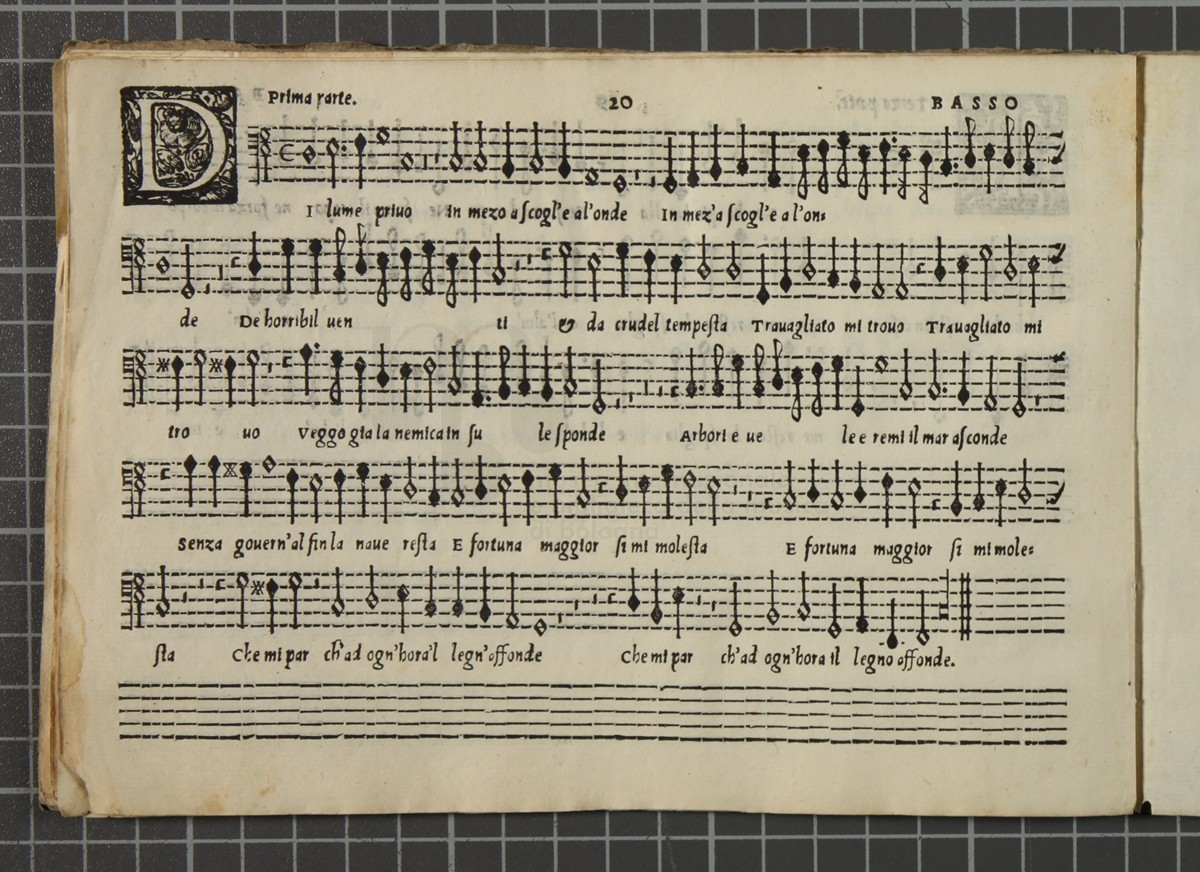 Prima parte. 20 BASSO
D I lume priuo in mezo a ſcogl'e al'onde In mez'a ſcogl'e a l'on:
de De horribil uen ti & da crudel tempeſta Trauagliato mi trouo Trauagliato mi
tro uo Veggo gia la nemica in ſu le ſponde Arbori e ue le e remi il mar aſconde
Senza gouern'al fin la naue reſta E fortuna maggior ſi mi moleſta E fortuna maggior ſi mi mole:
ſta Che mi par ch'ad ogn'hora'l legn'offonde Che mi par ch'ad ogn'hora il legno offonde.